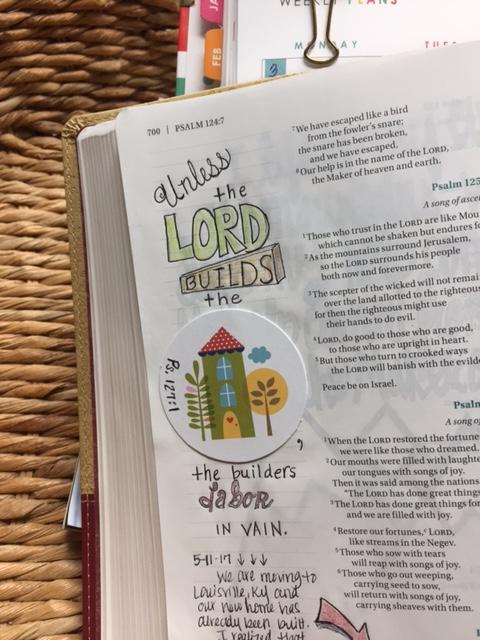 WEEKLY PLANS
MONDAY
TUES
3
JA
FEB
700 | PSALM 124:7
Unless
the
LORD
BUILDS
the
Ps. 127:1
,
the builders
labor
IN VAIN.
5-11-17 ↓ ↓ ↓
We are moving to
Louisville, Ky and
our new home has
already been built.
I realized that
7We have escaped like a bird
from the fowler's snare;
the snare has been broken,
and we have escaped.
8Our help is in the name of the LORD,
the Maker of heaven and earth.
Psalm 125
A song of ascen
1Those who trust in the LORD are like Mou
which cannot be shaken but endures fo
2As the mountains surround Jerusalem,
so the LORD surrounds his people
both now and forevermore.
3The scepter of the wicked will not remai
over the land allotted to the righteous
for then the righteous might use
their hands to do evil.
4LORD, do good to those who are good,
to those who are upright in heart.
5But those who turn to crooked ways
the LORD will banish with the evildo
Peace be on Israel.
Psalm
A song of
1When the LORD restored the fortune
we were like those who dreamed.
2Our mouths were filled with laughte
our tongues with songs of joy.
Then it was said among the nations
"The LORD has done great things
3The LORD has done great things for
and we are filled with joy.
4Restore our fortunes, c LORD,
like streams in the Negev.
5Those who sow with tears
will reap with songs of joy.
6Those who go out weeping,
carrying seed to sow,
will return with songs of joy,
carrying sheaves with them.